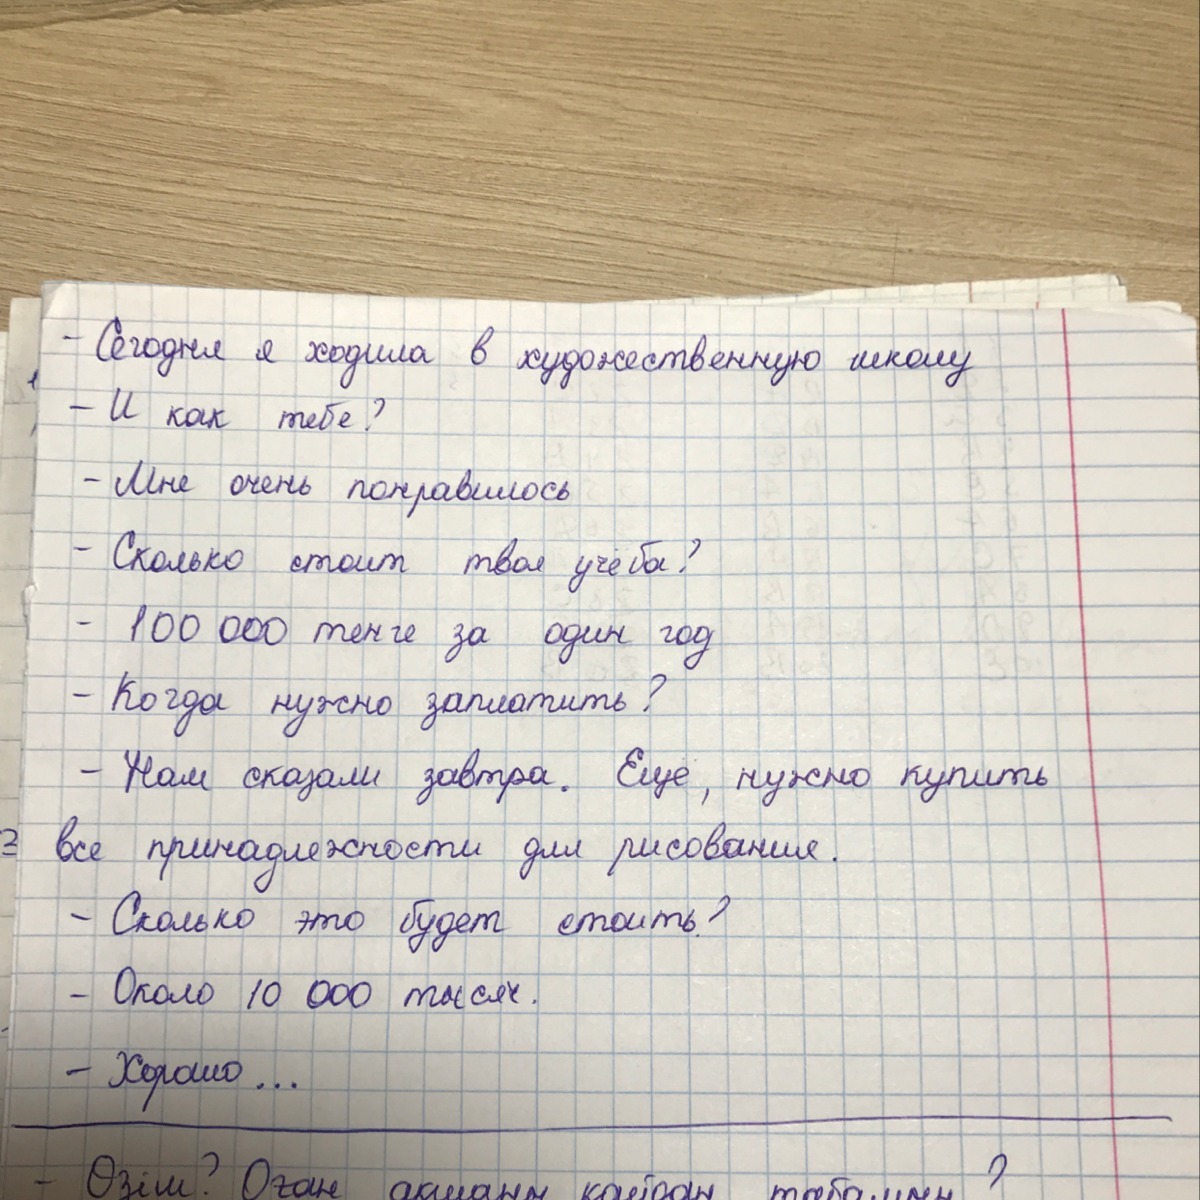 - Сегодня я ходила в художественную школу
- И как тебе?
- Мне очень понравилось
- Сколько стоит твоя учёба?
- 100 000 тенге за один год
- Когда нужно заплатить?
- Нам сказали завтра. Ещё, нужно купить
все принадлежности для рисования.
- Сколько это будет стоить?
- Около 10 000 тысяч.
- Хорошо...
- Өзім? Оған ақшаны қайдан табамын?